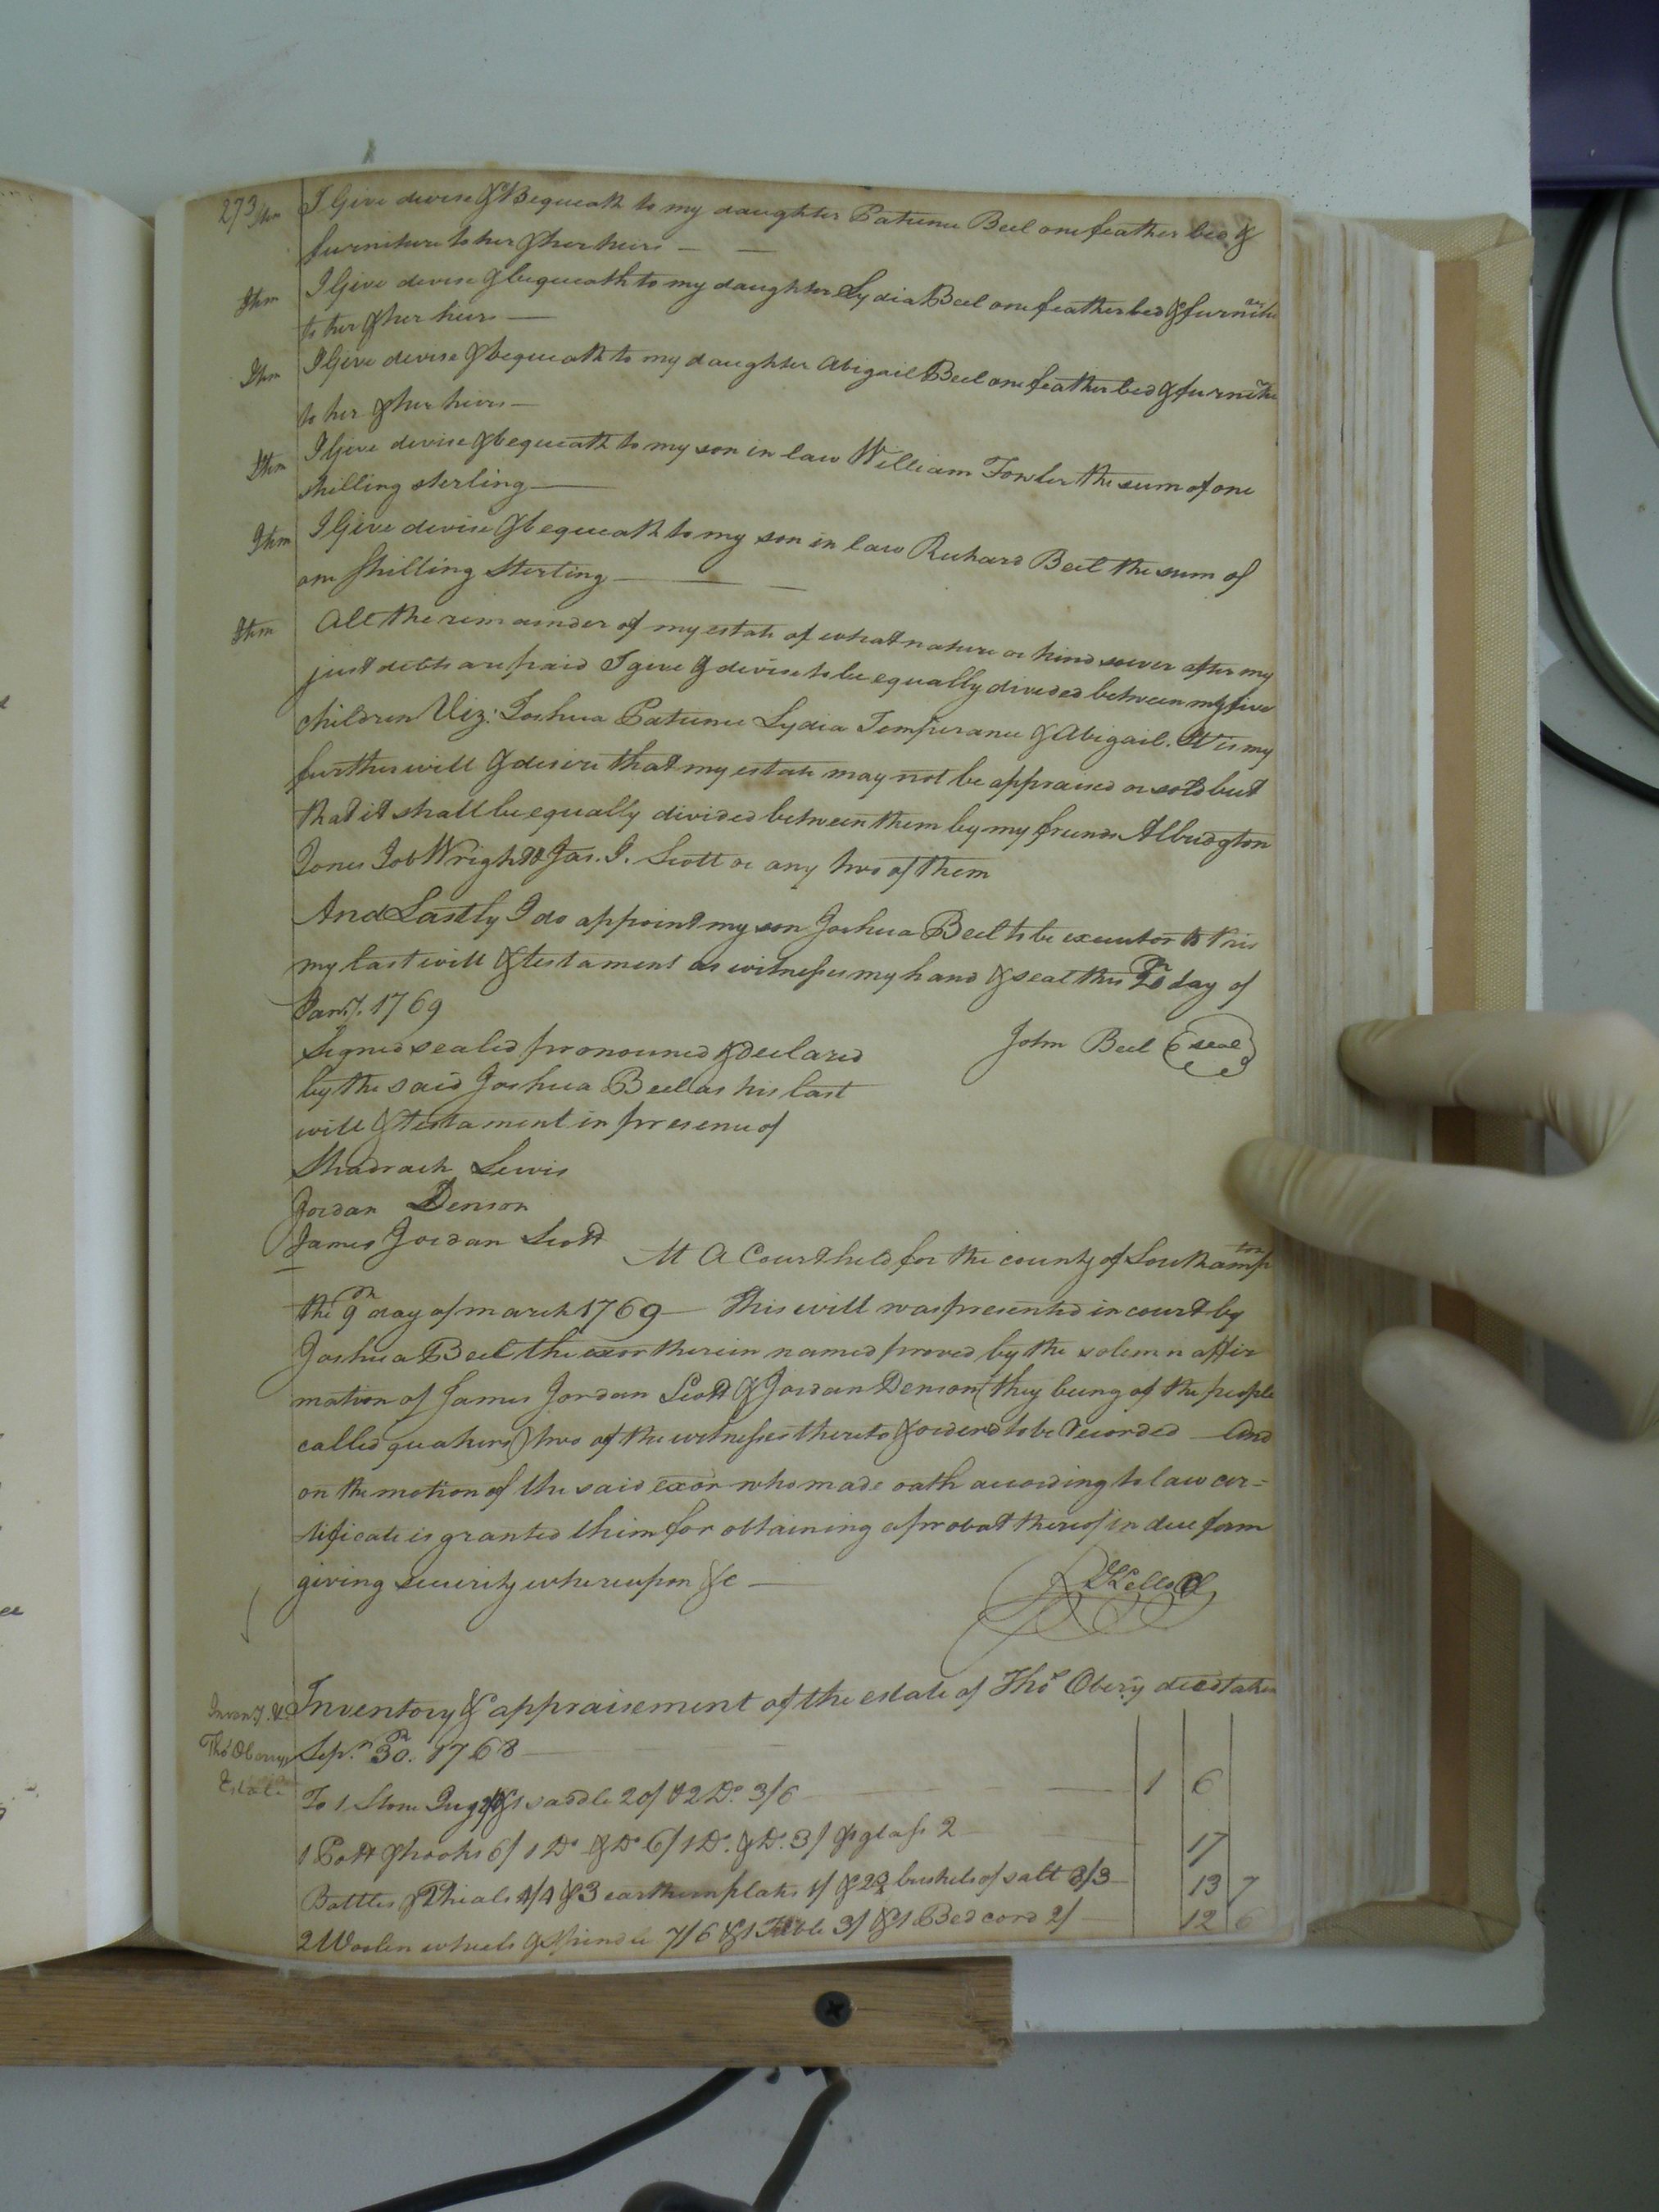 273 Itm I Give devise & Bequeath to my daughter Patience Beel one feather bed &
furniture to her & her heirs —
Itm I Give devise & bequeath to my daughter Lydia Beel one feather bed & furniture
to her & her heirs —
Itm I Give devise & bequeath to my daughter Abigail Beel one feather bed & furniture
to her & her heirs —
Itm I Give devise & bequeath to my son in law William Fowler the sum of one
shilling sterling —
Itm I Give devise & bequeath to my son in law Richard Beel the sum of
one shilling sterling —
Itm All the remainder of my estate of what nature or kind soever after my
just debts are paid I give & devise to be equally divided between my five
children Viz: Joshua Patience Lydia Temperance & Abigail. It is my
further will & desire that my estate may not be appraised or sold but
that it shall be equally divided between them by my friends Albridgton
Jones Job Wright & Jas. J. Scott or any two of them
And Lastly I do appoint my son Joshua Beel to be executor to this
my last will & testament as witness my hand & seal this day of
Jany. 1769
Signed sealed pronounced & declared John Beel (seal)
by the said Joshua Beel as his last
will & testament in presence of
Shadrach Lewis
Jordan Denson
James Jordan Scott
At A Court held for the county of Southampton
the 9th day of march 1769 — This will was presented in court by
Joshua Beel the exor therein named proved by the solemn affir
mation of James Jordan Scott & Jordan Denson (they being of the people
called quakers) two of the witnesses thereto & orderd to be recorded — And
on the motion of the said exor who made oath according to law cer=
tificate is granted him for obtaining a probat thereof in due form
giving security whereupon &c —
Inventory & appraisement of the estate of Thos Obery decd taken
Inventy. &c.
Thos Oberrys
Estate
Sepr. 30th. 1768 —
To 1 Stone Jug & 1 saddle 20/ & 2 Do. 3/6 — 1 6
1 Pott & hooks 6/ 1 Do & Do 6/ 1 Do. & Do. 3/ glass 2 17
Bottles & 2 Phials 4/4 & 3 earthern plates 1/ & bushels of salt 8/3 — 13 7
2 Woolen wheels & spindle 7/6 & 1 Table 3/ & 1 Bed cord 2/ — 12 6